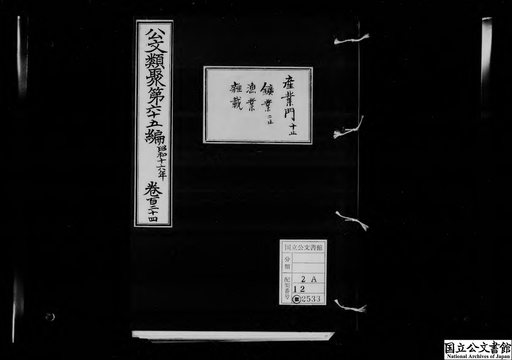 公文類聚第六十五編 昭和十六年 巻百二十四
産業門 十止
鑛業 二止
漁業
雜載
国立公文書館
分類
配架番号
2 A
12
2533
国立公文書館
National Archives of Japan